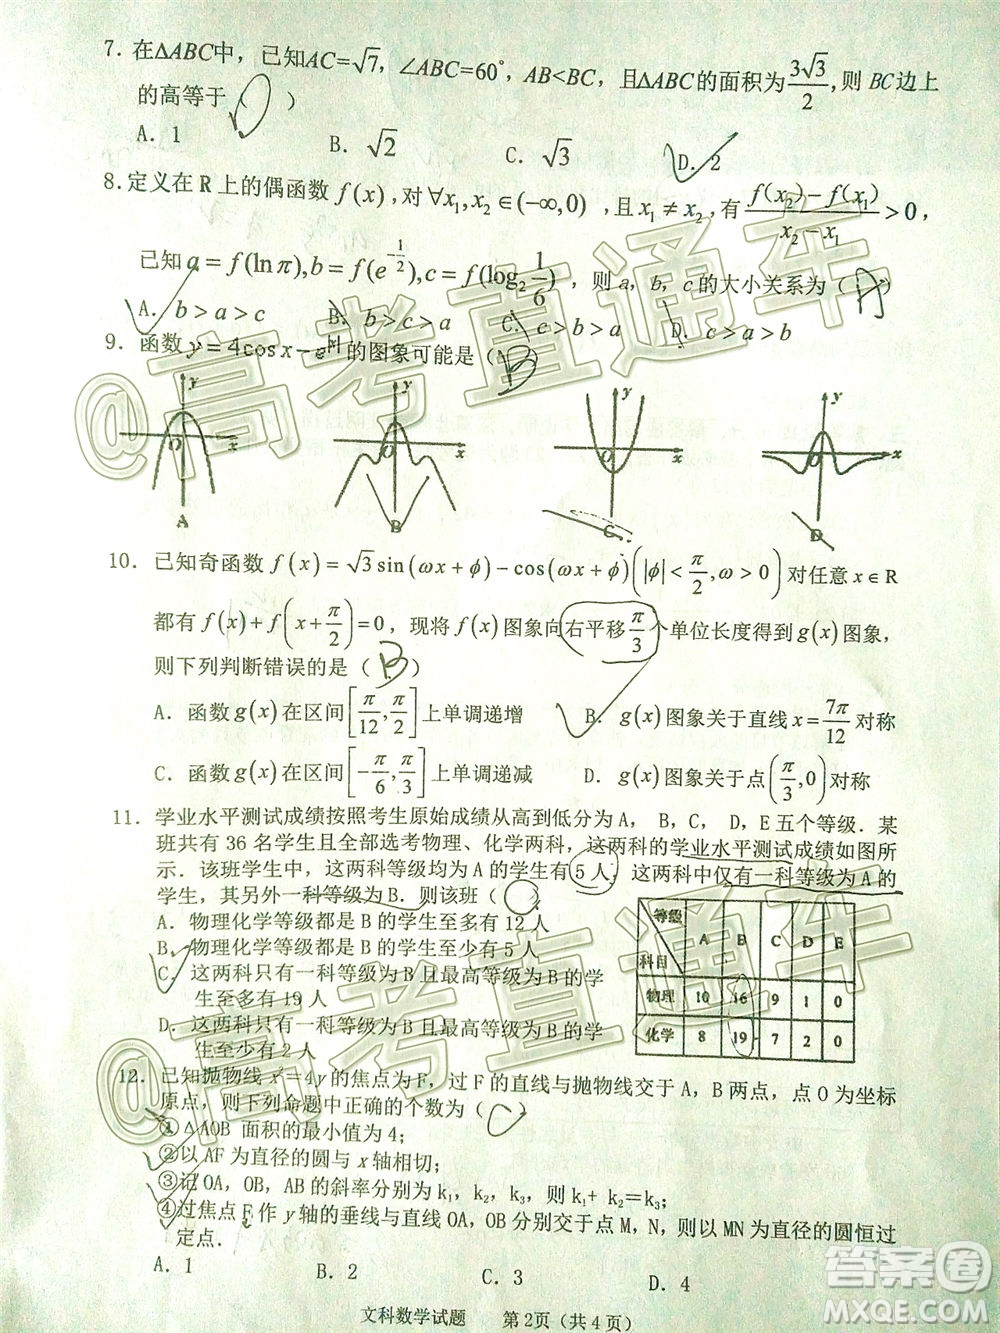 7. 在△ABC中, 已知AC=√7, ∠ABC=60°, AB<BC, 且△ABC的面积为3√3/2, 则BC边上
的高等于( )
A. 1 B. √2 C. √3 D. 2
8. 定义在R上的偶函数 f(x), 对∀x₁,x₂∈(-∞,0), 且x₁≠x₂, 有 (f(x₂)-f(x₁))/(x₂-x₁)>0,
已知a=f(lnπ), b=f(e^(-1/2)), c=f(log₂1/6), 则a, b, c的大小关系为( A )
A. b>a>c B. b>c>a C. c>b>a D. c>a>b
9. 函数y=4cosx-e^|x|的图象可能是( B )
y y y y
O x O x O x O x
A B C D
10. 已知奇函数f(x)=√3sin(ωx+ϕ)-cos(ωx+ϕ)(|ϕ|<π/2, ω>0)对任意x∈R
都有f(x)+f(x+π/2)=0, 现将f(x)图象向右平移π/3个单位长度得到g(x)图象,
则下列判断错误的是( B )
A. 函数g(x)在区间[π/12, π/2]上单调递增 B. g(x)图象关于直线x=7π/12对称
C. 函数g(x)在区间[-π/6, π/3]上单调递减 D. g(x)图象关于点(π/3, 0)对称
11. 学业水平测试成绩按照考生原始成绩从高到低分为A, B, C, D, E五个等级. 某
班共有36名学生且全部选考物理、化学两科, 这两科的学业水平测试成绩如图所
示. 该班学生中, 这两科等级均为A的学生有5人, 这两科中仅有一科等级为A的
学生, 其另外一科等级为B. 则该班( )
A. 物理化学等级都是B的学生至多有12人
B. 物理化学等级都是B的学生至少有5人
C. 这两科只有一科等级为B且最高等级为B的学
生至多有19人
D. 这两科只有一科等级为B且最高等级为B的学
生至少有2人
等级 科目 A B C D E
物理 10 16 9 1 0
化学 8 19 7 2 0
12. 已知抛物线x²=4y的焦点为F, 过F的直线与抛物线交于A, B两点, 点O为坐标
原点, 则下列命题中正确的个数为( C )
①△AOB 面积的最小值为4;
②以AF为直径的圆与x轴相切;
③记OA, OB, AB的斜率分别为k₁, k₂, k₃, 则k₁+k₂=k₃;
④过焦点F作y轴的垂线与直线OA, OB分别交于点M, N, 则以MN为直径的圆恒过
定点.
A. 1 B. 2 C. 3 D. 4
文科数学试题 第2页(共4页)
@高考直通车
@高考直通车
答案圈
MXQE.COM